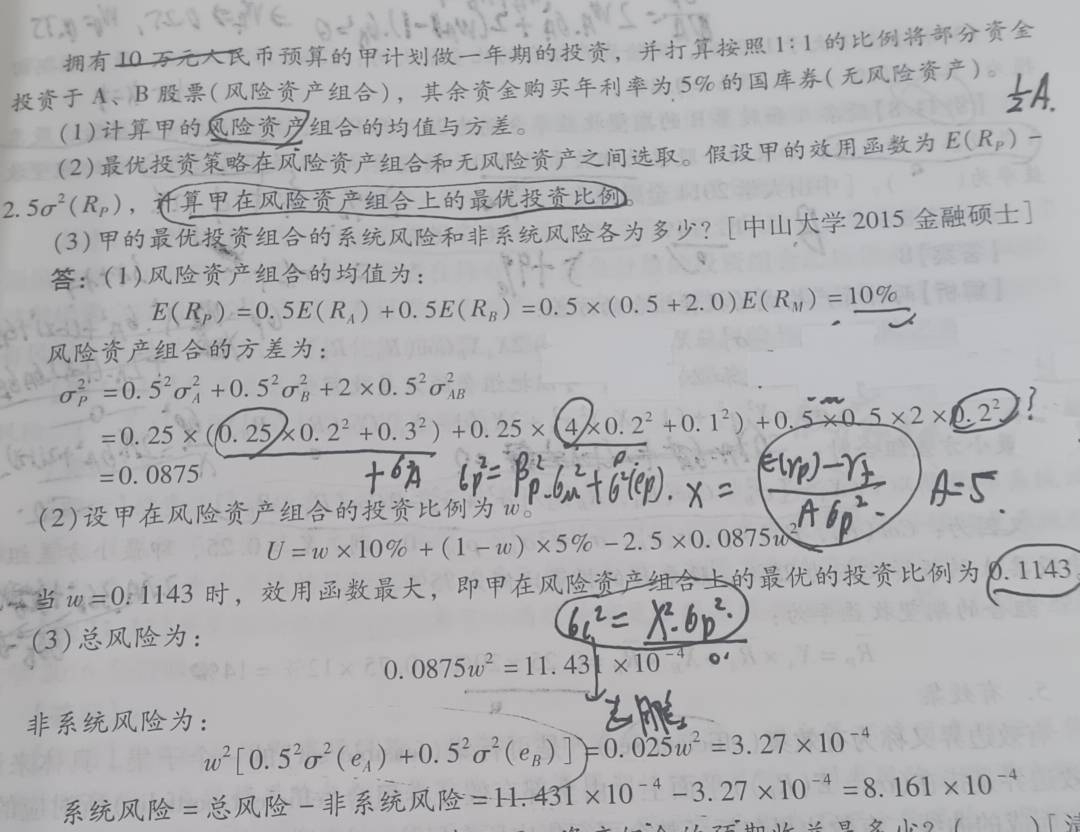 拥有10万元人民币预算的甲计划做一年期的投资，并打算按照1:1的比例将部分资金
投资于A、B股票(风险资产组合)，其余资金购买年利率为5%的国库券(无风险资产)。
½A.
(1)计算甲的风险资产组合的均值与方差。
(2)最优投资策略在风险资产组合和无风险资产之间选取。假设甲的效用函数为E(R_P)−
2.5σ²(R_P)，计算甲在风险资产组合上的最优投资比例。
(3)甲的最优投资组合的系统风险和非系统风险各为多少？[中山大学2015金融硕士]
答：(1)风险资产组合的均值为：
E(R_P)=0.5E(R_A)+0.5E(R_B)=0.5×(0.5+2.0)E(R_M)=10%
风险资产组合的方差为：
σ_P²=0.5²σ_A²+0.5²σ_B²+2×0.5²σ_AB²
=0.25×(0.25×0.2²+0.3²)+0.25×(4×0.2²+0.1²)+0.5×0.5×2×0.2² ?
=0.0875
σp²=βp²·σm²+σ²(ep). X=E(rp)−rf/Aσp² A=5
(2)设甲在风险资产组合的投资比例为w。
U=w×10%+(1−w)×5%−2.5×0.0875w²
当w=0.1143时，效用函数最大，即甲在风险资产组合上的最优的投资比例为0.1143。
σc²=X²·σp².
(3)总风险为：
0.0875w²=11.431×10⁻⁴
非系统风险为：
w²[0.5²σ²(e_A)+0.5²σ²(e_B)]=0.025w²=3.27×10⁻⁴
系统风险=总风险−非系统风险=11.431×10⁻⁴−3.27×10⁻⁴=8.161×10⁻⁴